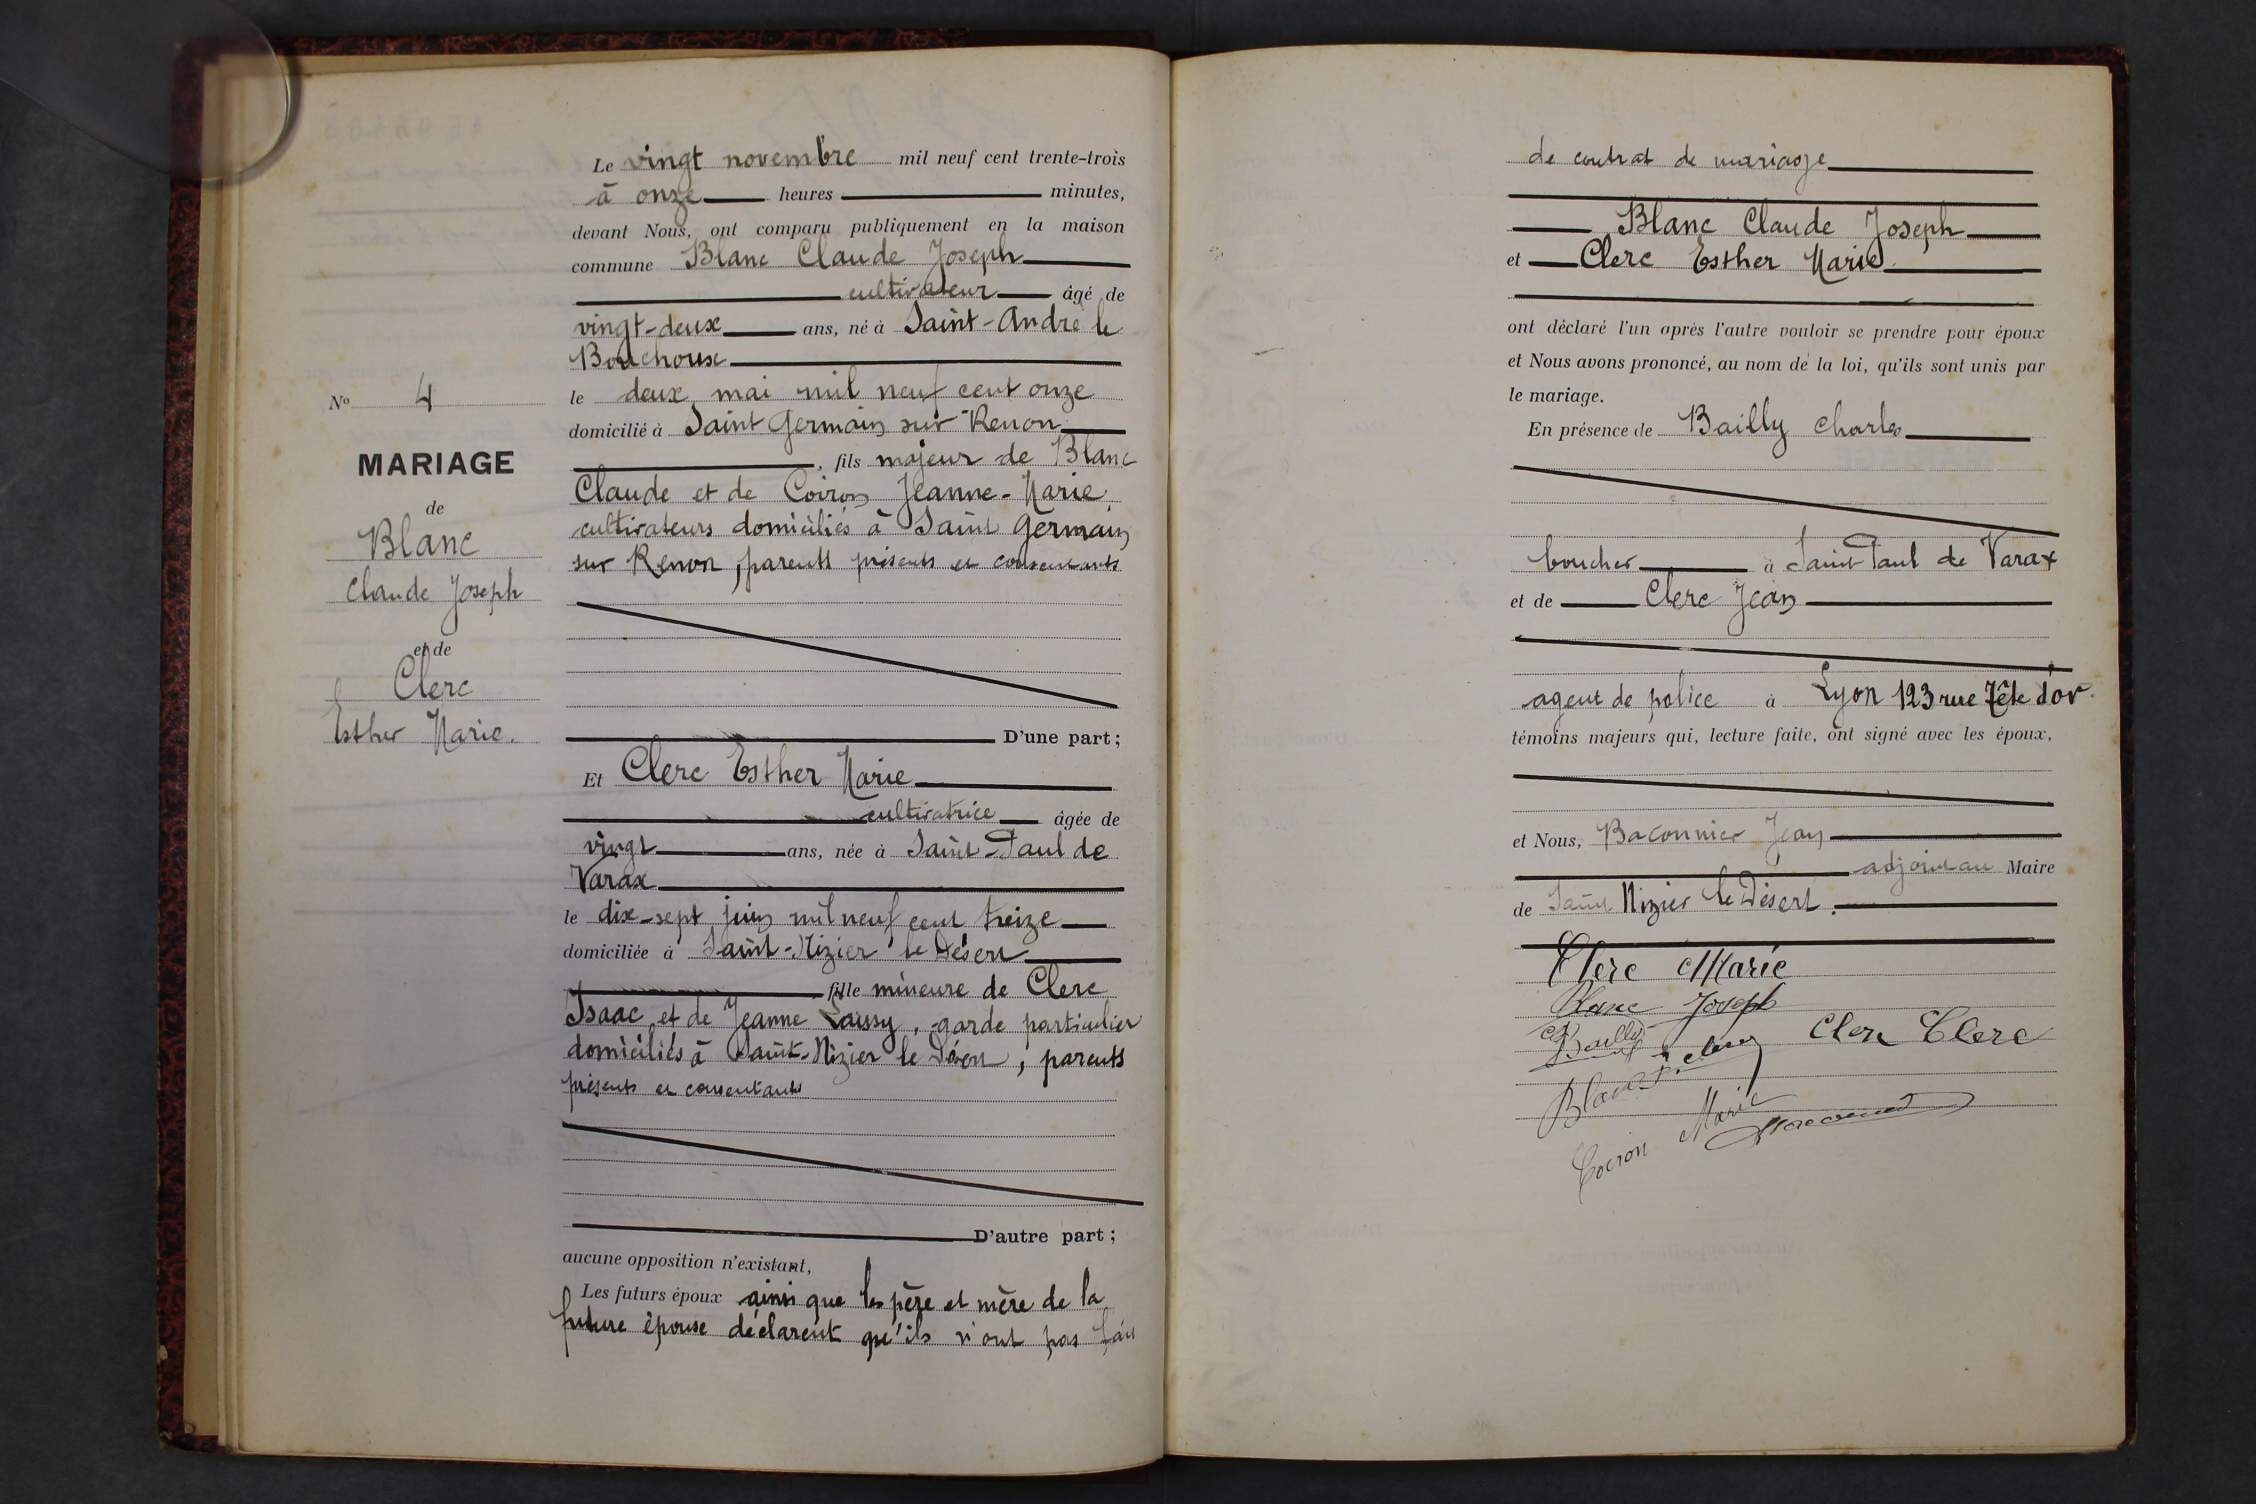 N° 4
MARIAGE
de
Blanc
Claude Joseph
et de
Clerc
Esther Marie.
Le vingt novembre mil neuf cent trente-trois
à onze heures minutes,
devant Nous, ont comparu publiquement en la maison
commune Blanc Claude Joseph
cultivateur âgé de
vingt-deux ans, né à Saint-André le
Bouchoux
le deux mai mil neuf cent onze
domicilié à Saint Germain sur Renon
, fils majeur de Blanc
Claude et de Coiron Jeanne-Marie
cultivateurs domiciliés à Saint Germain
sur Renon, parents présents et consentants
D'une part;
Et Clerc Esther Marie
cultivatrice âgée de
vingt ans, née à Saint-Paul de
Varax
le dix-sept juin mil neuf cent treize
domiciliée à Saint-Nizier le Désert
fille mineure de Clerc
Isaac et de Jeanne , garde particulier
domiciliés à Saint-Nizier le Désert, parents
présents et consentants
D'autre part;
aucune opposition n'existant,
Les futurs époux ainsi que les père et mère de la
future épouse déclarent qu'ils n'ont pas fait
de contrat de mariage
Blanc Claude Joseph
et Clerc Esther Marie
ont déclaré l'un après l'autre vouloir se prendre pour époux
et Nous avons prononcé, au nom de la loi, qu'ils sont unis par
le mariage.
En présence de Bailly Charles
boucher à Saint Paul de Varax
et de Clerc Jean
agent de police à Lyon 123 rue Tête d'or
témoins majeurs qui, lecture faite, ont signé avec les époux,
et Nous, Baconnier Jean
adjoint au Maire
de Saint Nizier le Désert.
Clerc Marie
Blanc Joseph
Bailly Clerc Clerc
Blanc
Coiron Marie